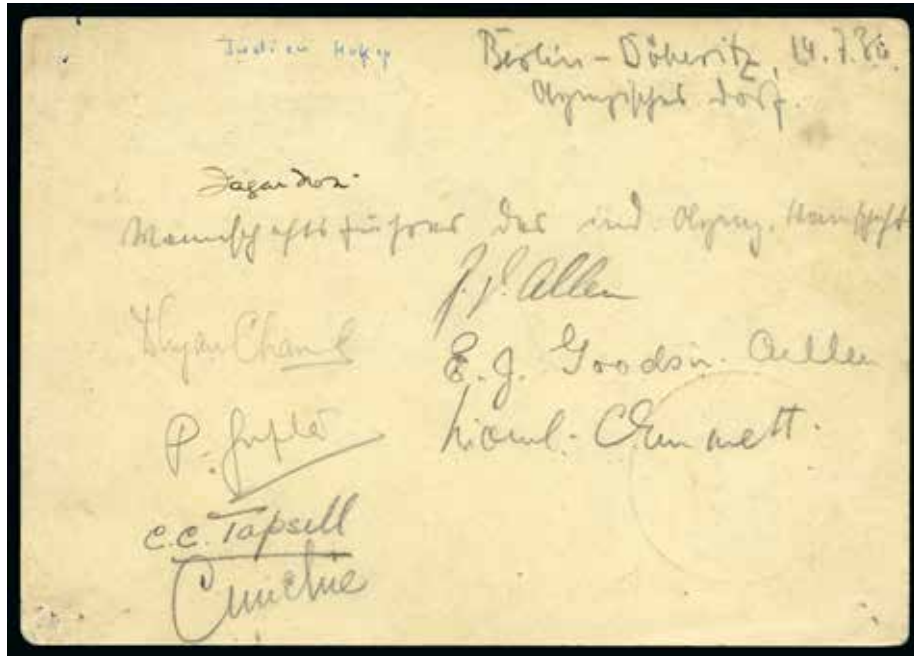 Indien Hokey
Berlin-Döberitz, 14.7.36.
Olympisches Dorf.
Mannschaftsführer der ind. Olymp. Mannschaft
J. Allen
Dhyan Chand
E. J. Goodsir-Cullen
P. Gupta
Lionel. C. Emmett.
C.C. Tapsell